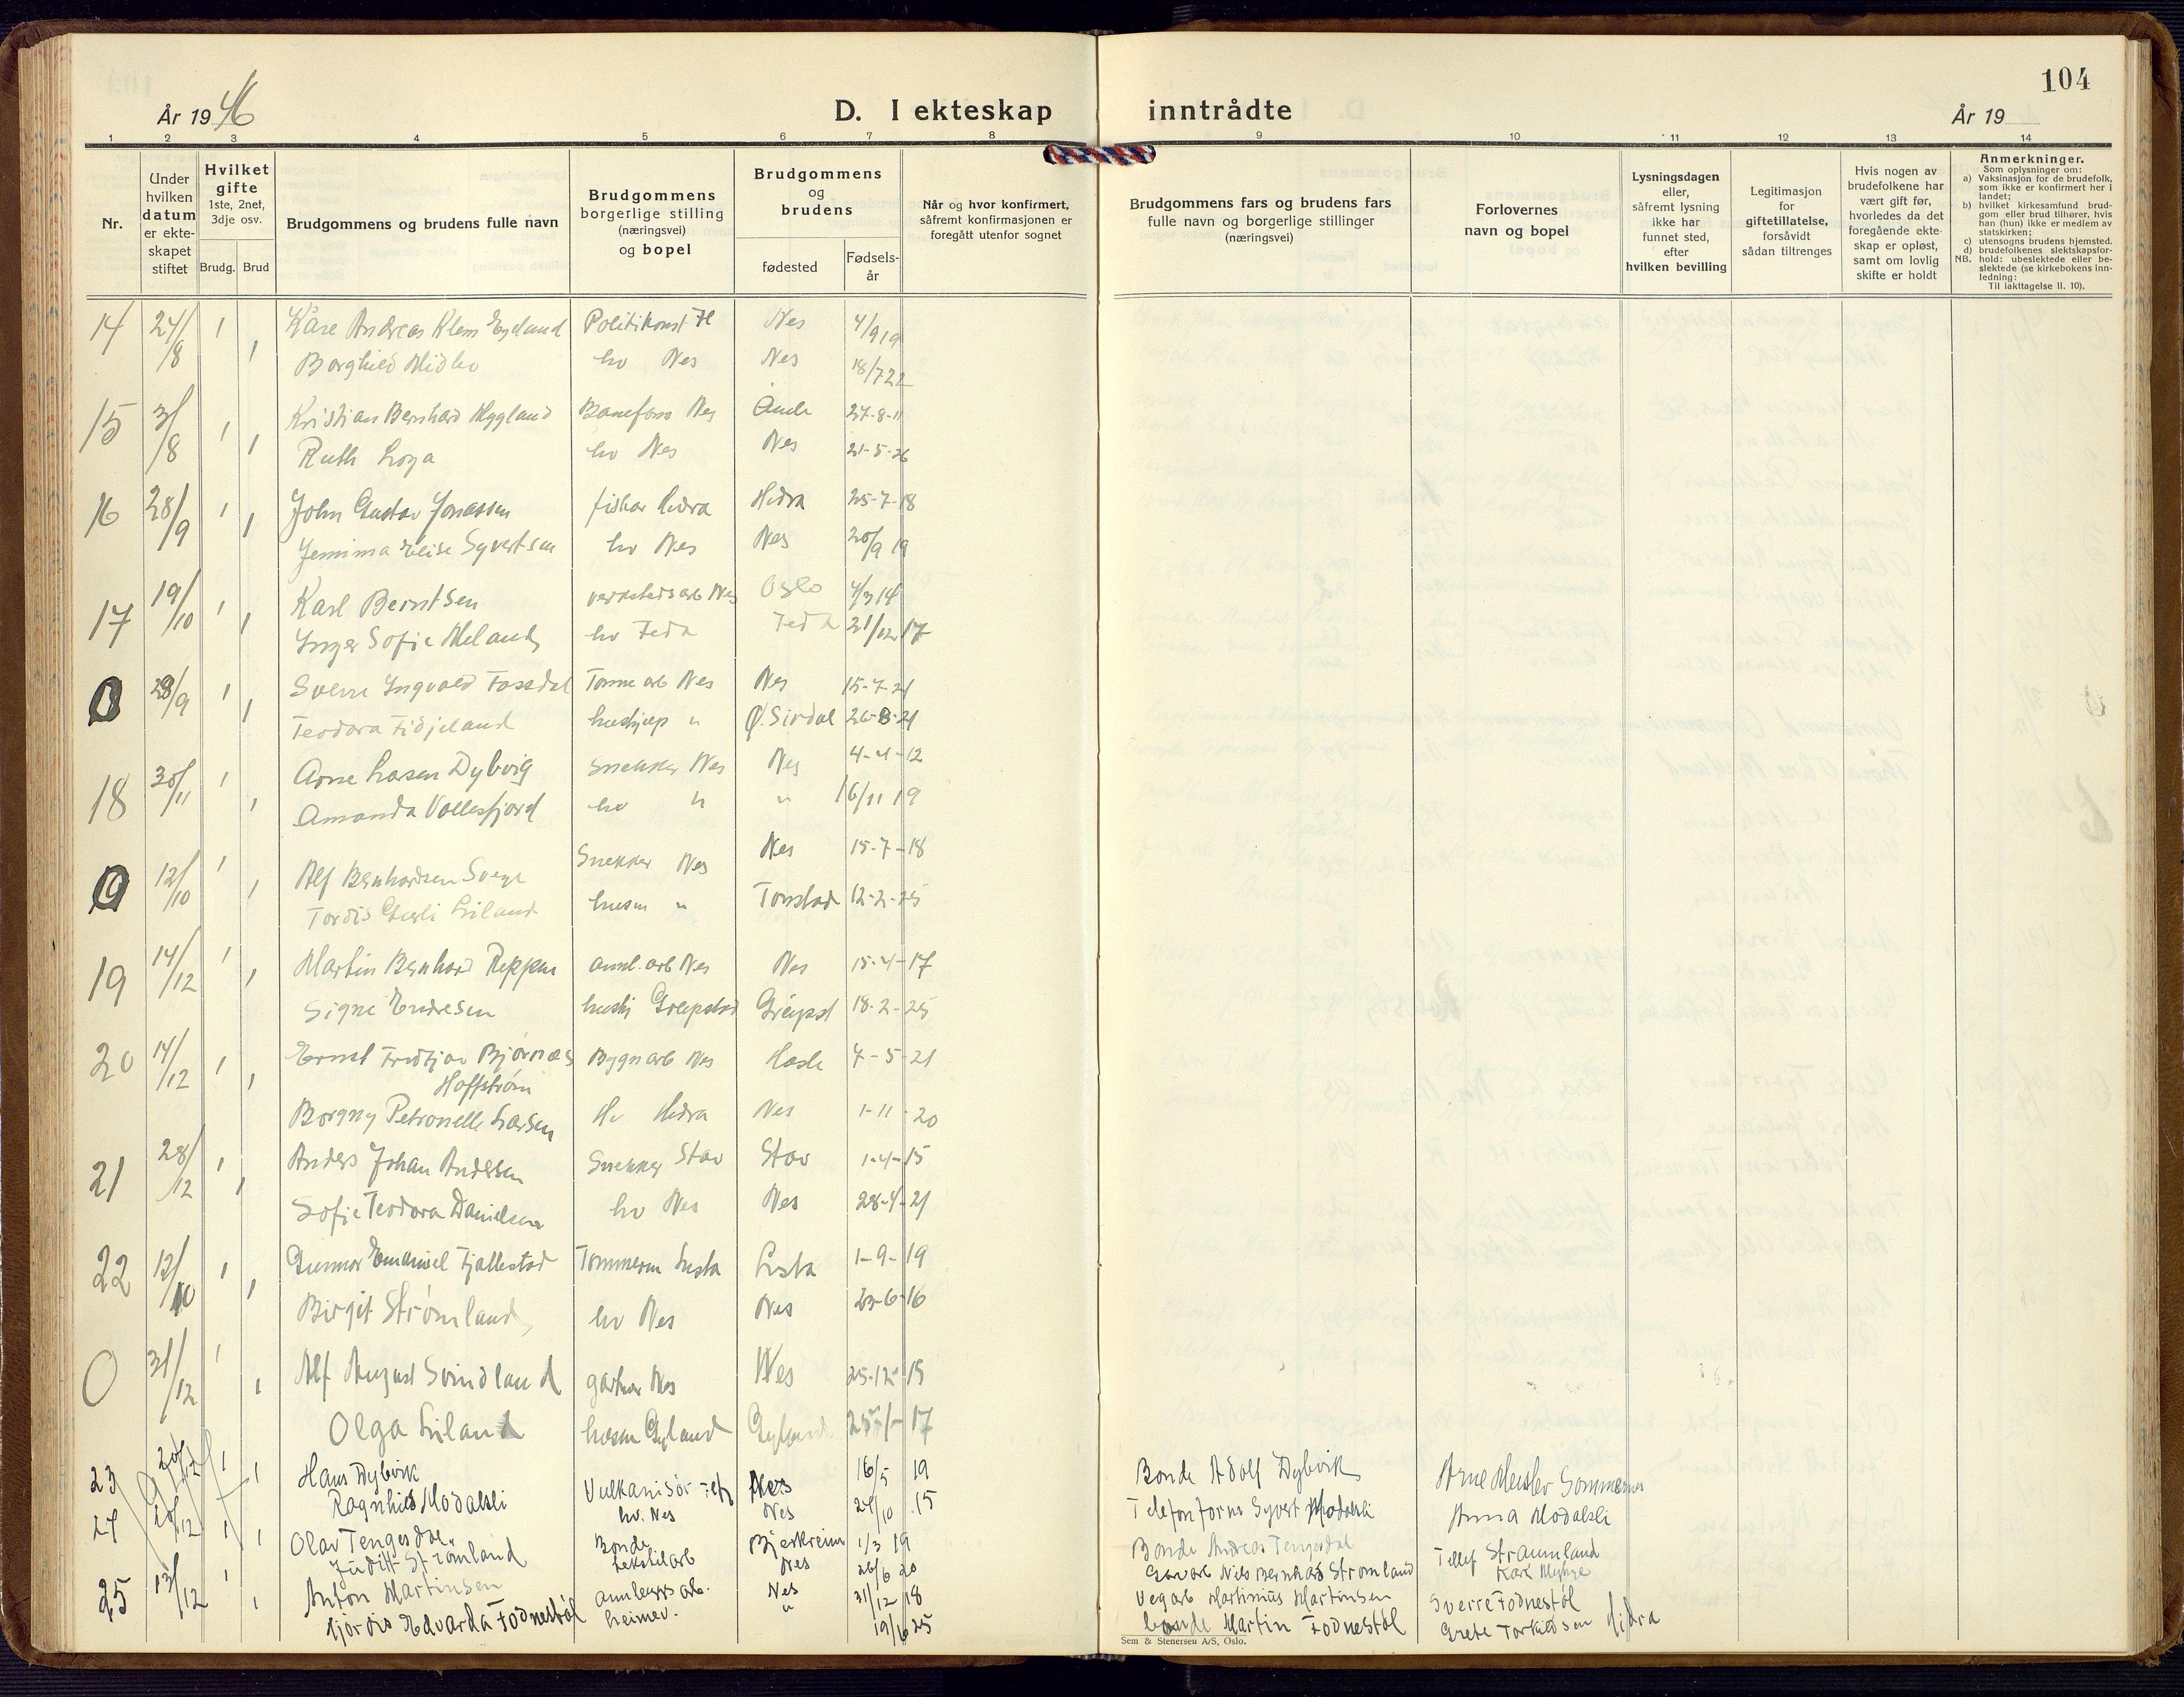 104
År 1946
D. I ekteskap inntrådte
År 19
1 2 3 4 5 6 7 8 9 10 11 12 13 14
Nr.
Under hvilken datum er ekte-skapet stiftet
Hvilket gifte 1ste, 2net, 3dje osv.
Brudg. Brud
Brudgommens og brudens fulle navn
Brudgommens borgerlige stilling (næringsvei) og bopel
Brudgommens og brudens
fødested
Fødsels-år
Når og hvor konfirmert, såfremt konfirmasjonen er foregått utenfor sognet
Brudgommens fars og brudens fars fulle navn og borgerlige stillinger (næringsvei)
Forlovernes navn og bopel
Lysningsdagen eller, såfremt lysning ikke har funnet sted, efter hvilken bevilling
Legitimasjon for giftetillatelse, forsåvidt sådan tiltrenges
Hvis nogen av brudefolkene har vært gift før, hvorledes da det foregående ekte-skap er opløst, samt om lovlig skifte er holdt
Anmerkninger.
Som oplysninger om:
a) Vaksinasjon for de brudefolk, som ikke er konfirmert her i landet;
b) hvilket kirkesamfund brud-gom eller brud tilhører, hvis han (hun) ikke er medlem av statskirken;
c) utensogns brudens hjemsted.
d) brudefolkenes slektskapsfor-hold: ubeslektede eller be-slektede (se kirkebokens inn-ledning:
NB. Til iakttagelse II. 10).
14 24/8 1 Kåre Andreas Klem Eyeland Politikonst Nes 4/9 19
1 Borghild Midbø hv Nes Nes 18/7 22
15 31/8 1 Kristian Bernhard Myglland Nes 27-8-11
1 Ruth Loga hv Nes Nes 21-5-26
16 28/9 1 John Gustav Jonassen fisker Hidra Hidra 25-7-18
1 Jemima Elise Syvertsen hv Nes Nes 20/9 19
17 19/10 1 Karl Berntsen verkstedsarb Nes Oslo 4/3 14
1 Inger Sofie Meland hv Feda Feda 21/12 17
0 28/9 1 Sverre Yngvald Fossdal Tønne arb Nes Nes 15-7-21
1 Teodora Fidjeland hushjelp " Ø. Sirdal 26-8-21
18 30/11 1 Arne Larsen Dybvig Snekker Nes Nes 4-4-12
1 Amanda Vollesfjord hv " " 16/11 19
0 12/10 1 Alf Bernhardsen Svege Snekker Nes Nes 15-7-18
1 Tordis Gurli Liland husm " Tonstad 12-2-25
19 14/12 1 Martin Bernhard Reppen annl. arb Nes Nes 15-4-17
1 Signe Endresen hushj Greipstad Greipst 18-2-25
20 14/12 1 Ernst Fridtjov Bjørnæs Hoffstrøm Bygn arb Nes Hasle 7-5-21
1 Borgny Petronelle Larsen Hv Hidra Nes 1-11-20
21 28/12 1 Anders Johan Andersen Snekker Stav Stav 1-4-15
1 Sofie Teodora Danielsen hv Nes Nes 28-4-21
22 12/10 1 Gunnar Emanuel Fjellestad Tømmerm Lista Lista 1-9-19
1 Birgit Strømland hv Nes Nes 23-6-16
0 31/12 1 Alf August Svindland gartner Nes Nes 25-12-15
1 Olga Liland husm Gyland Gyland 25-1-17
23 20/12 1 1 Hans Dybvik Vulkanisør Nes 16/5 19 Bonde Adolf Dybvik Arne Meisler Sommernes
Ragnhild Modalsli hv. Nes Nes 24/10 15 Telefonform Syvert Modalsli Anna Modalsli
24 28/12 1 1 Olav Tengesdal Bonde Bjerkreim 1/3 19 Bonde Andreas Tengesdal Tellef Straumland
Judith Strømland tekstilarb Nes 26/6 20 Garvarb Nils Bernhard Strømland Kåre Myhre
25 13/12 1 Anton Martinsen annleggs arb. Nes 31/12 18 Vegarb Martinius Martinsen Sverre Fodnestøl
1 Hjørdis Edvarda Fodnestøl heimev. " 19/6 25 bonde Martin Fodnestøl Grete Torkildsen Hidra
Sem & Stenersen A/S, Oslo.